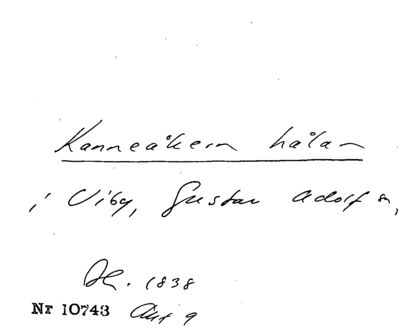 Kanneåkern hålan
i Viby, Gustav Adolf sn,
1838
Nr 10743 Akt 9